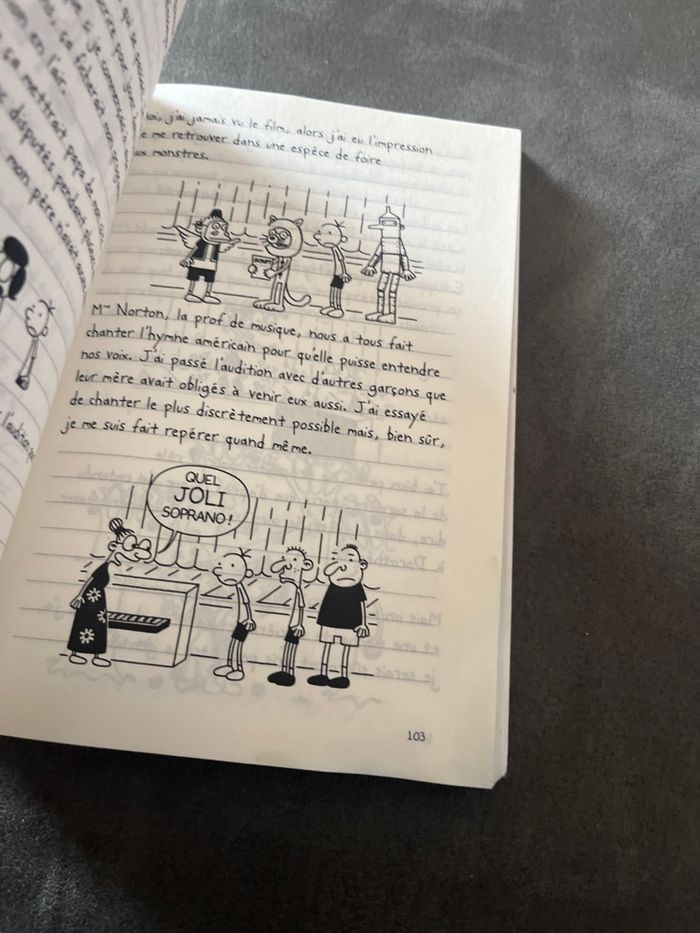 en l'air.
ça mettrait papa de
disputés pendant
mon père n'avait
l'audition
oi, j'ai jamais vu le film, alors j'ai eu l'impression
e me retrouver dans une espèce de foire
ux monstres.
SCRIPT
Mme Norton, la prof de musique, nous a tous fait
chanter l'hymne américain pour qu'elle puisse entendre
nos voix. J'ai passé l'audition avec d'autres garçons que
leur mère avait obligés à venir eux aussi. J'ai essayé
de chanter le plus discrètement possible mais, bien sûr,
je me suis fait repérer quand même.
QUEL
JOLI
SOPRANO !
103